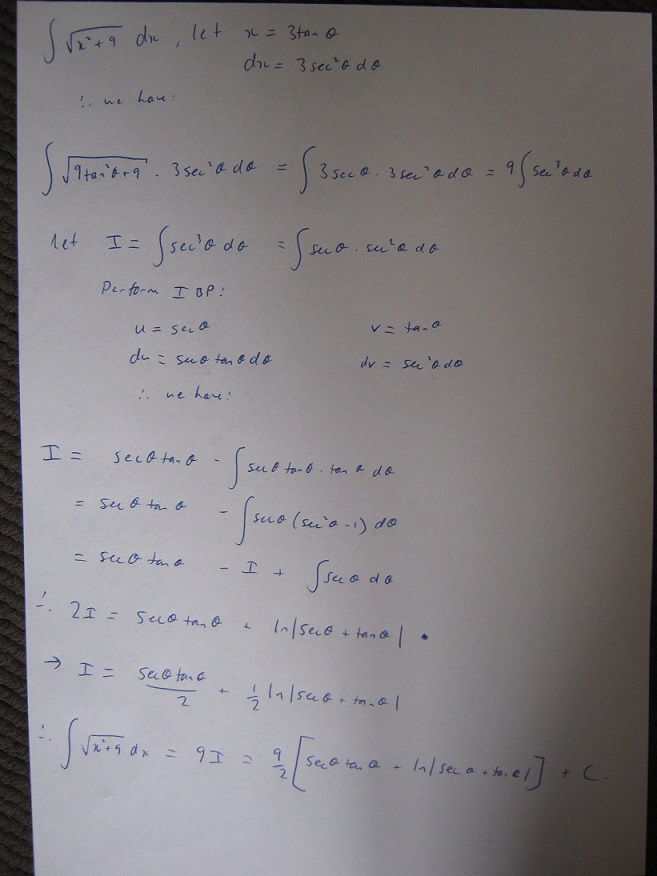 ∫ √(x²+9) dx , let x = 3tanθ
dx = 3sec²θ dθ
∴ we have:
∫ √(9tan²θ+9) · 3sec²θ dθ = ∫ 3secθ · 3sec²θ dθ = 9 ∫ sec³θ dθ
let I = ∫ sec³θ dθ = ∫ secθ · sec²θ dθ
Perform IBP:
u = secθ v = tanθ
du = secθ tanθ dθ dv = sec²θ dθ
∴ we have:
I = secθ tanθ - ∫ secθ tanθ · tanθ dθ
= secθ tanθ - ∫ secθ (sec²θ - 1) dθ
= secθ tanθ - I + ∫ secθ dθ
∴ 2I = secθ tanθ + ln|secθ + tanθ| .
→ I = secθ tanθ/2 + 1/2 ln|secθ + tanθ|
∴ ∫ √(x²+9) dx = 9I = 9/2 [secθ tanθ + ln|secθ + tanθ|] + C.